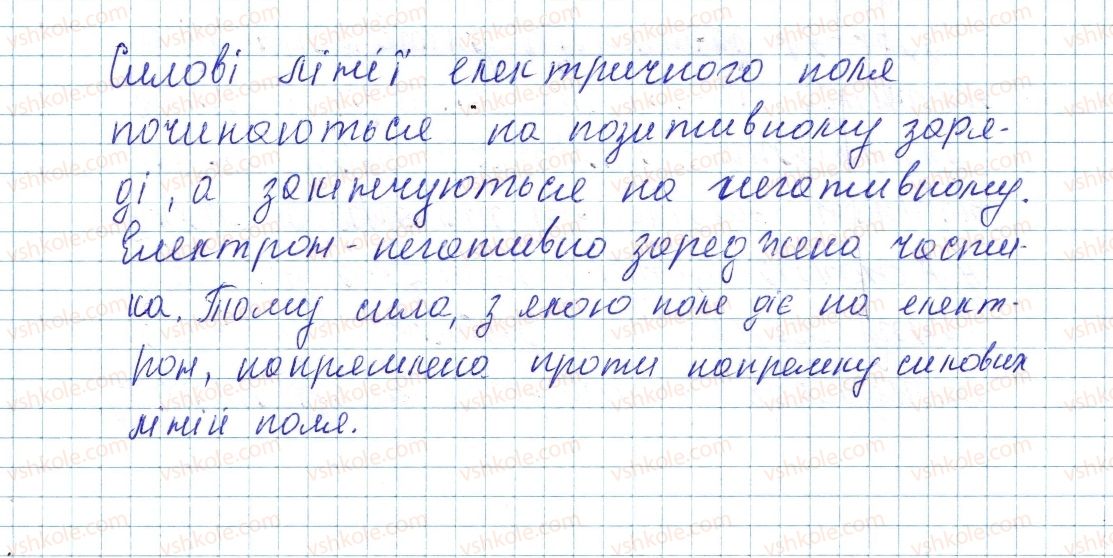 Силові лінії електричного поля
починаються на позитивному заря-
ді, а закінчуються на негативному.
Електрон - негативно заряджена частин-
ка. Тому сила, з якою поле діє на елект-
рон, напрямлена проти напрямку силових
ліній поля.